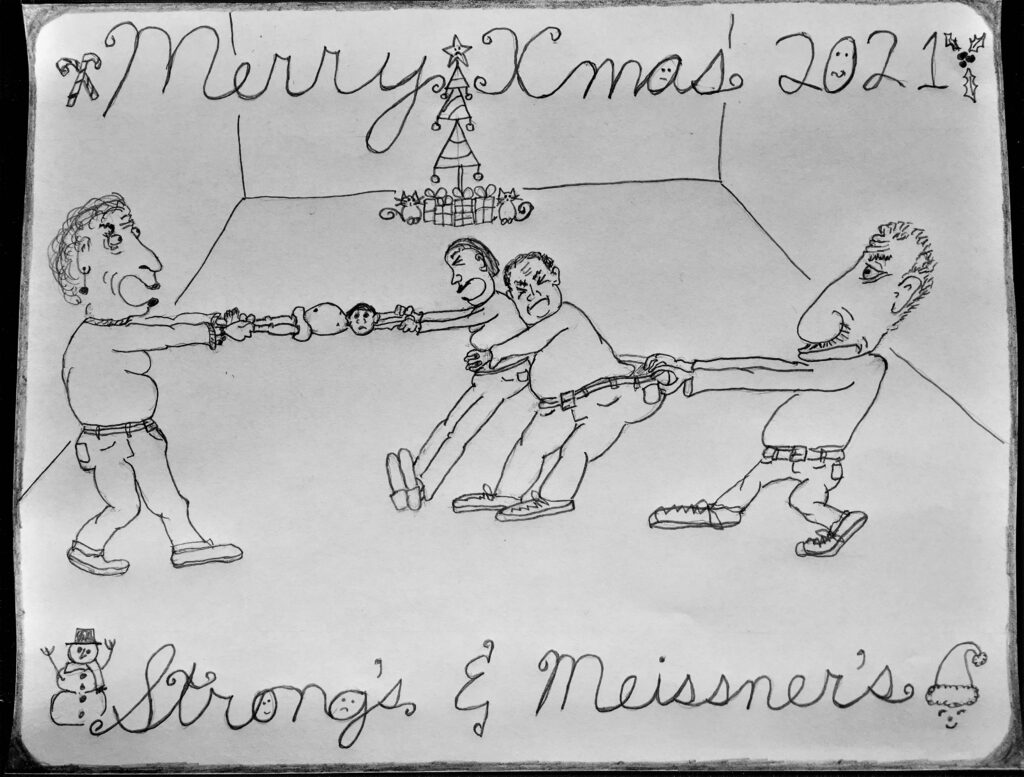 Merry Xmas' 2021
Strong's & Meissner's